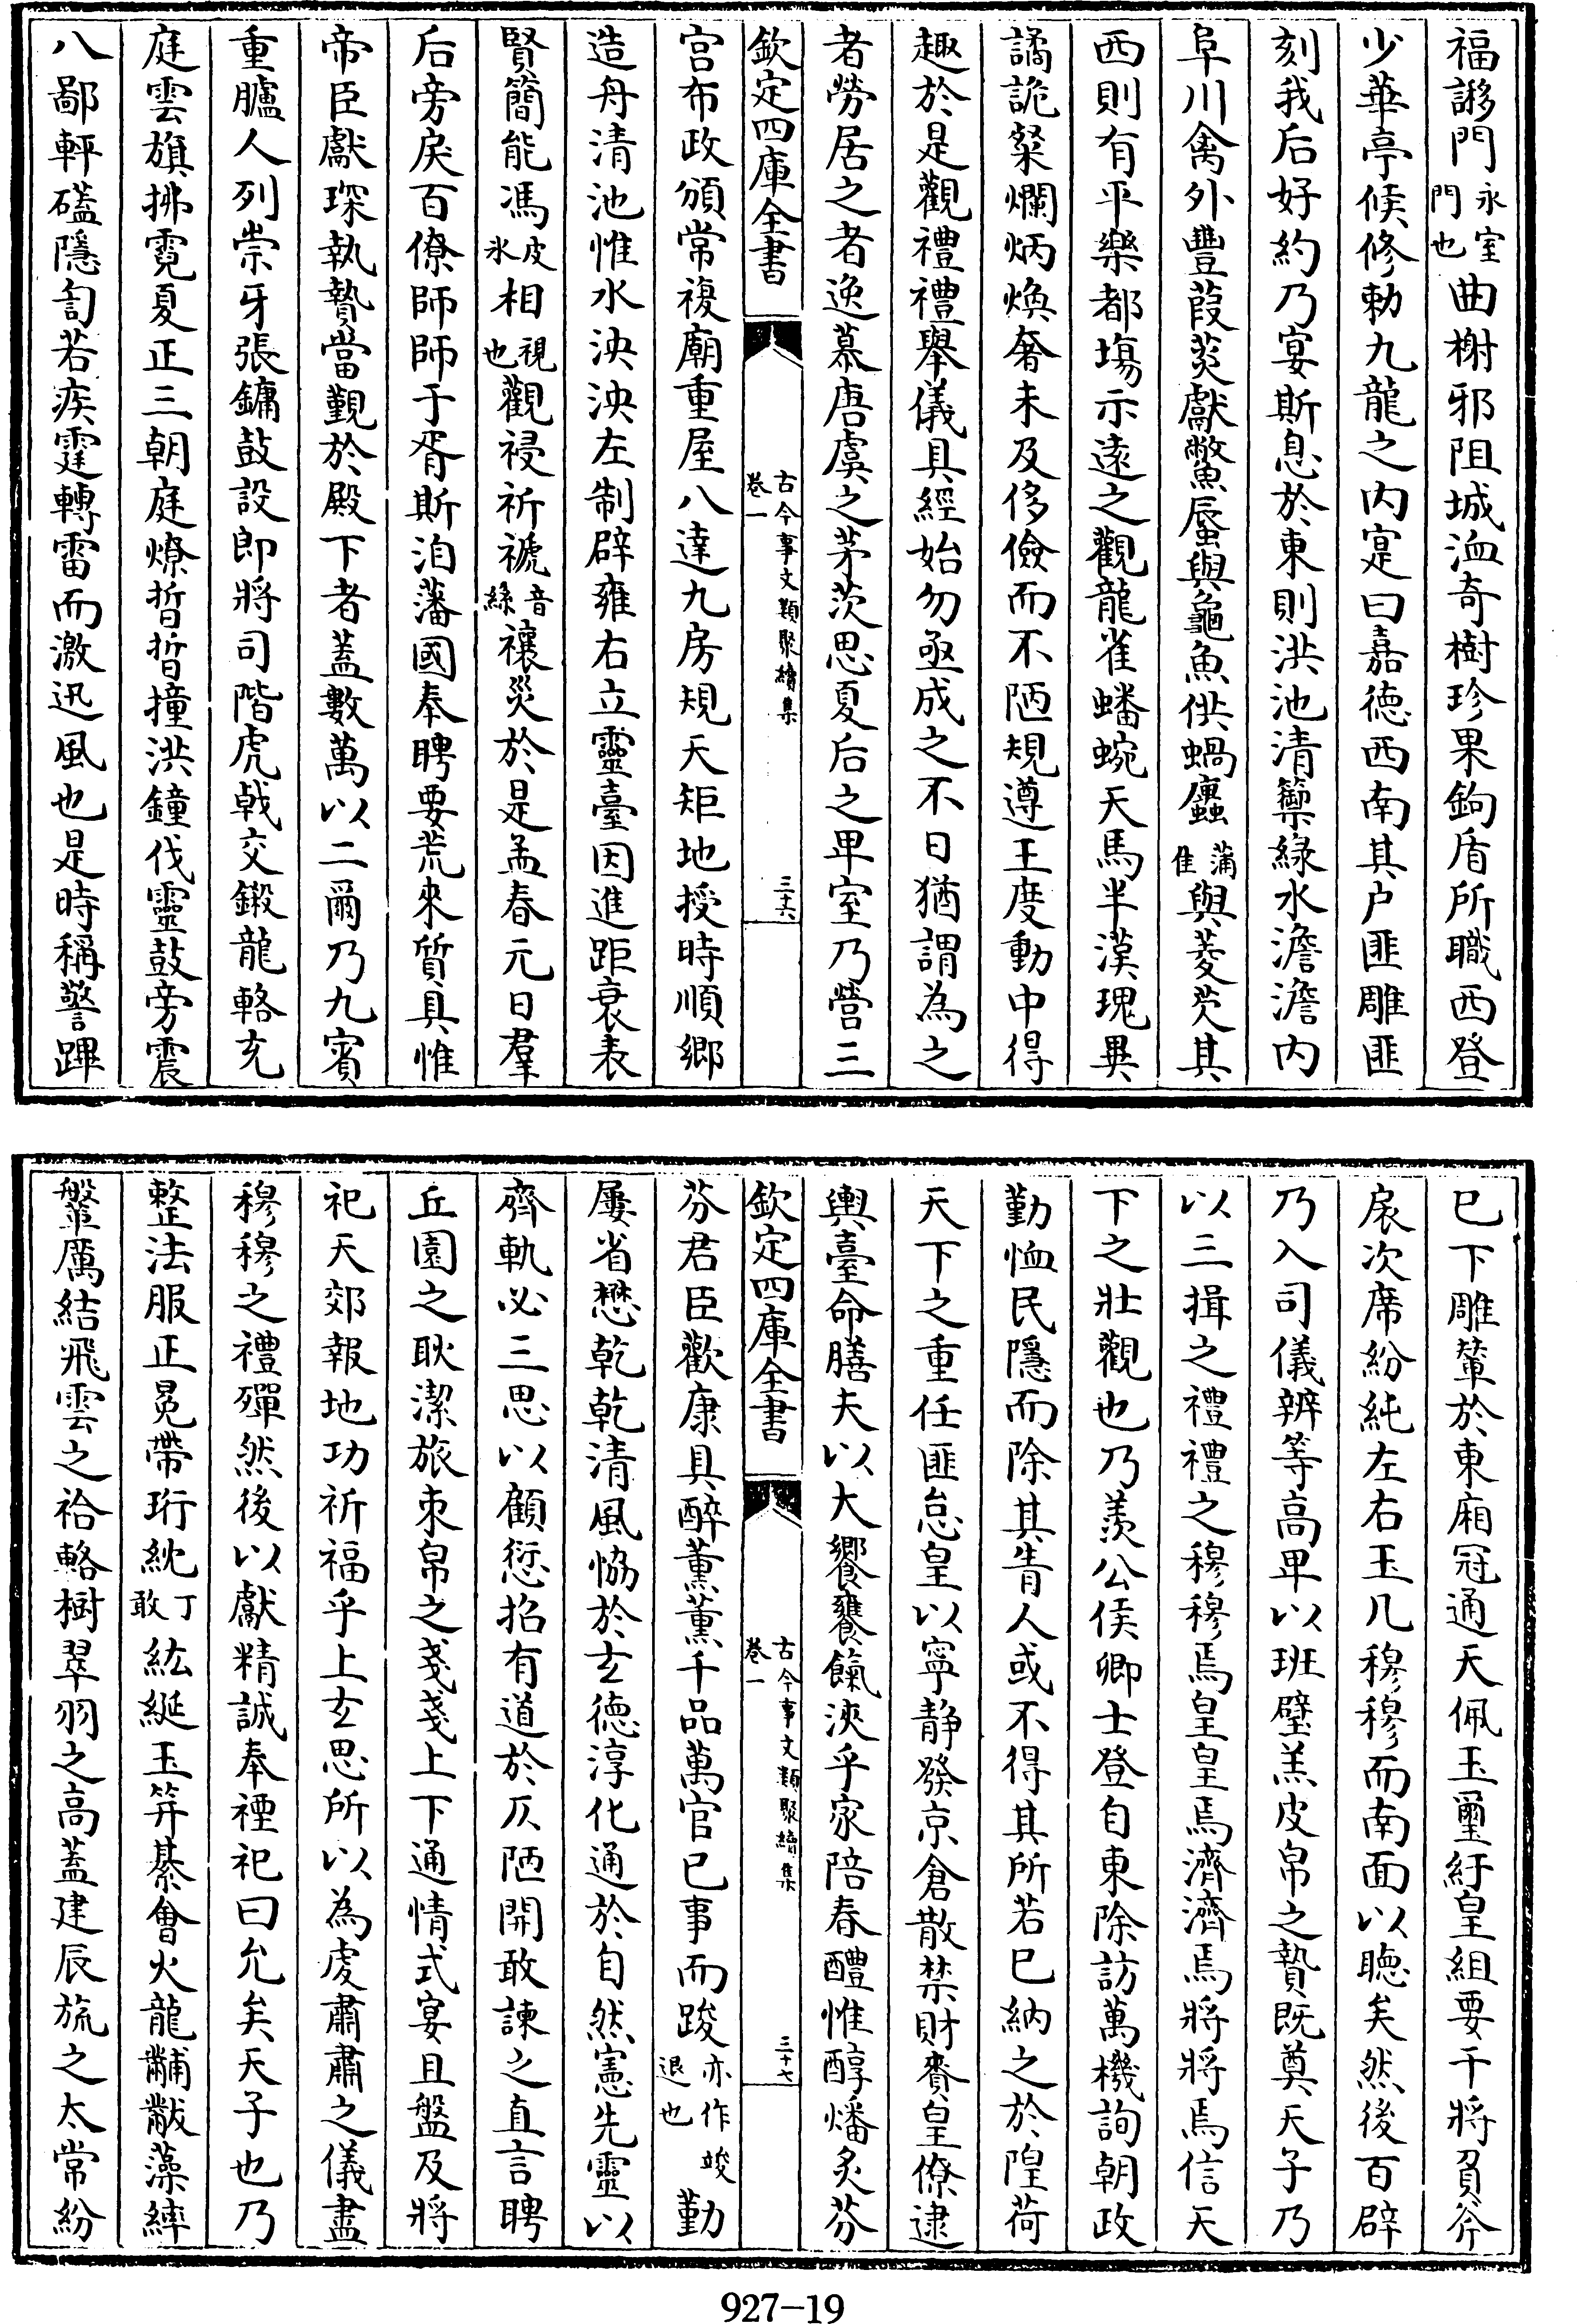 福謻門永室門也曲榭邪阻城洫奇樹珍果鉤盾所職西登
少華亭候修勅九龍之内寔曰嘉德西南其户匪雕匪
刻我后好約乃宴斯息於東則洪池清籞綠水澹澹内
阜川禽外豐葭菼獻鱉蜃與龜魚供蝸蠯蒲隹與菱芡其
西則有平樂都塲示遠之觀龍雀蟠蜿天馬半漢瑰異
譎詭粲爛炳煥奢未及侈儉而不陋規遵王度動中得
趣於是觀禮禮舉儀具經始勿亟成之不日猶謂為之
者勞居之者逸慕唐虞之茅茨思夏后之卑室乃營三
欽定四庫全書 古今事文類聚續集卷一 三十六
宫布政頒常複廟重屋八達九房規天矩地授時順鄉
造舟清池惟水泱泱左制辟雍右立靈臺因進距衰表
賢簡能馮皮氷相視也觀祲祈禠音絲禳災於是孟春元日羣
后旁戾百僚師師于胥斯洎藩國奉聘要荒來質具惟
帝臣獻琛執贄當覲於殿下者蓋數萬以二爾乃九賓
重臚人列崇牙張鏞鼓設郎將司階虎戟交鎩龍輅充
庭雲旗拂霓夏正三朝庭燎晢晢撞洪鐘伐靈鼓旁震
八鄙軯礚隱訇若疾霆轉雷而激迅風也是時稱警蹕
已下雕輦於東廂冠通天佩玉璽紆皇組要干將負斧
扆次席紛純左右玉几穆穆而南面以聽矣然後百辟
乃入司儀辨等高卑以班璧羔皮帛之贄既奠天子乃
以三揖之禮禮之穆穆焉皇皇焉濟濟焉將將焉信天
下之壯觀也乃羨公侯卿士登自東除訪萬機詢朝政
勤恤民隱而除其眚人或不得其所若已納之於隍荷
天下之重任匪怠皇以寧静發京倉散禁財賚皇僚逮
輿臺命膳夫以大饗饔餼浹乎家陪春醴惟醇燔炙芬
欽定四庫全書 古今事文類聚續集卷一 三十七
芬君臣歡康具醉薰薰千品萬官已事而踆亦作竣退也勤
屢省懋乾乾清風協於玄德淳化通於自然憲先靈以
齊軌必三思以顧愆招有道於仄陋開敢諫之直言聘
丘園之耿潔旅束帛之戔戔上下通情式宴且盤及將
祀天郊報地功祈福乎上玄思所以為虔肅肅之儀盡
穆穆之禮殫然後以獻精誠奉禋祀曰允矣天子也乃
整法服正冕帶珩紞丁敢紘綖玉笄綦會火龍黼黻藻繂
鞶厲結飛雲之袷輅樹翠羽之高蓋建辰旒之太常紛
927-19